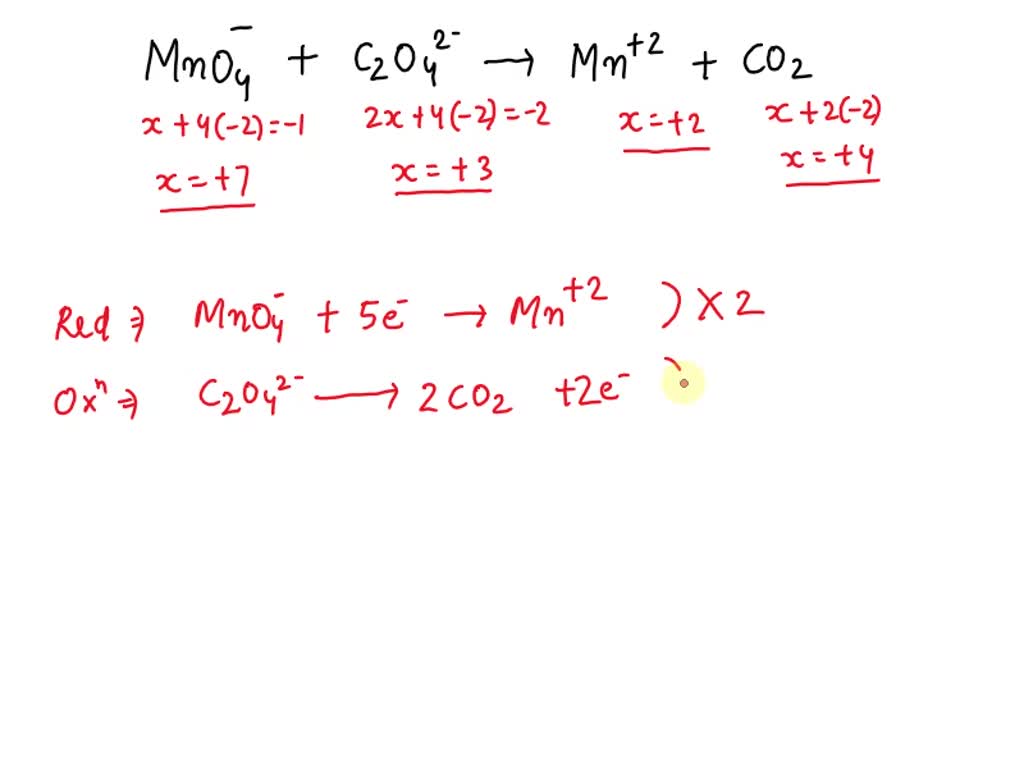 MnO₄⁻ + C₂O₄²⁻ → Mn⁺² + CO₂
x + 4(-2) = -1 2x + 4(-2) = -2 x = +2 x + 2(-2)
x = +7 x = +3 x = +4
Red ⇒ MnO₄⁻ + 5e⁻ → Mn⁺² ) × 2
Oxⁿ ⇒ C₂O₄²⁻ → 2CO₂ + 2e⁻ )